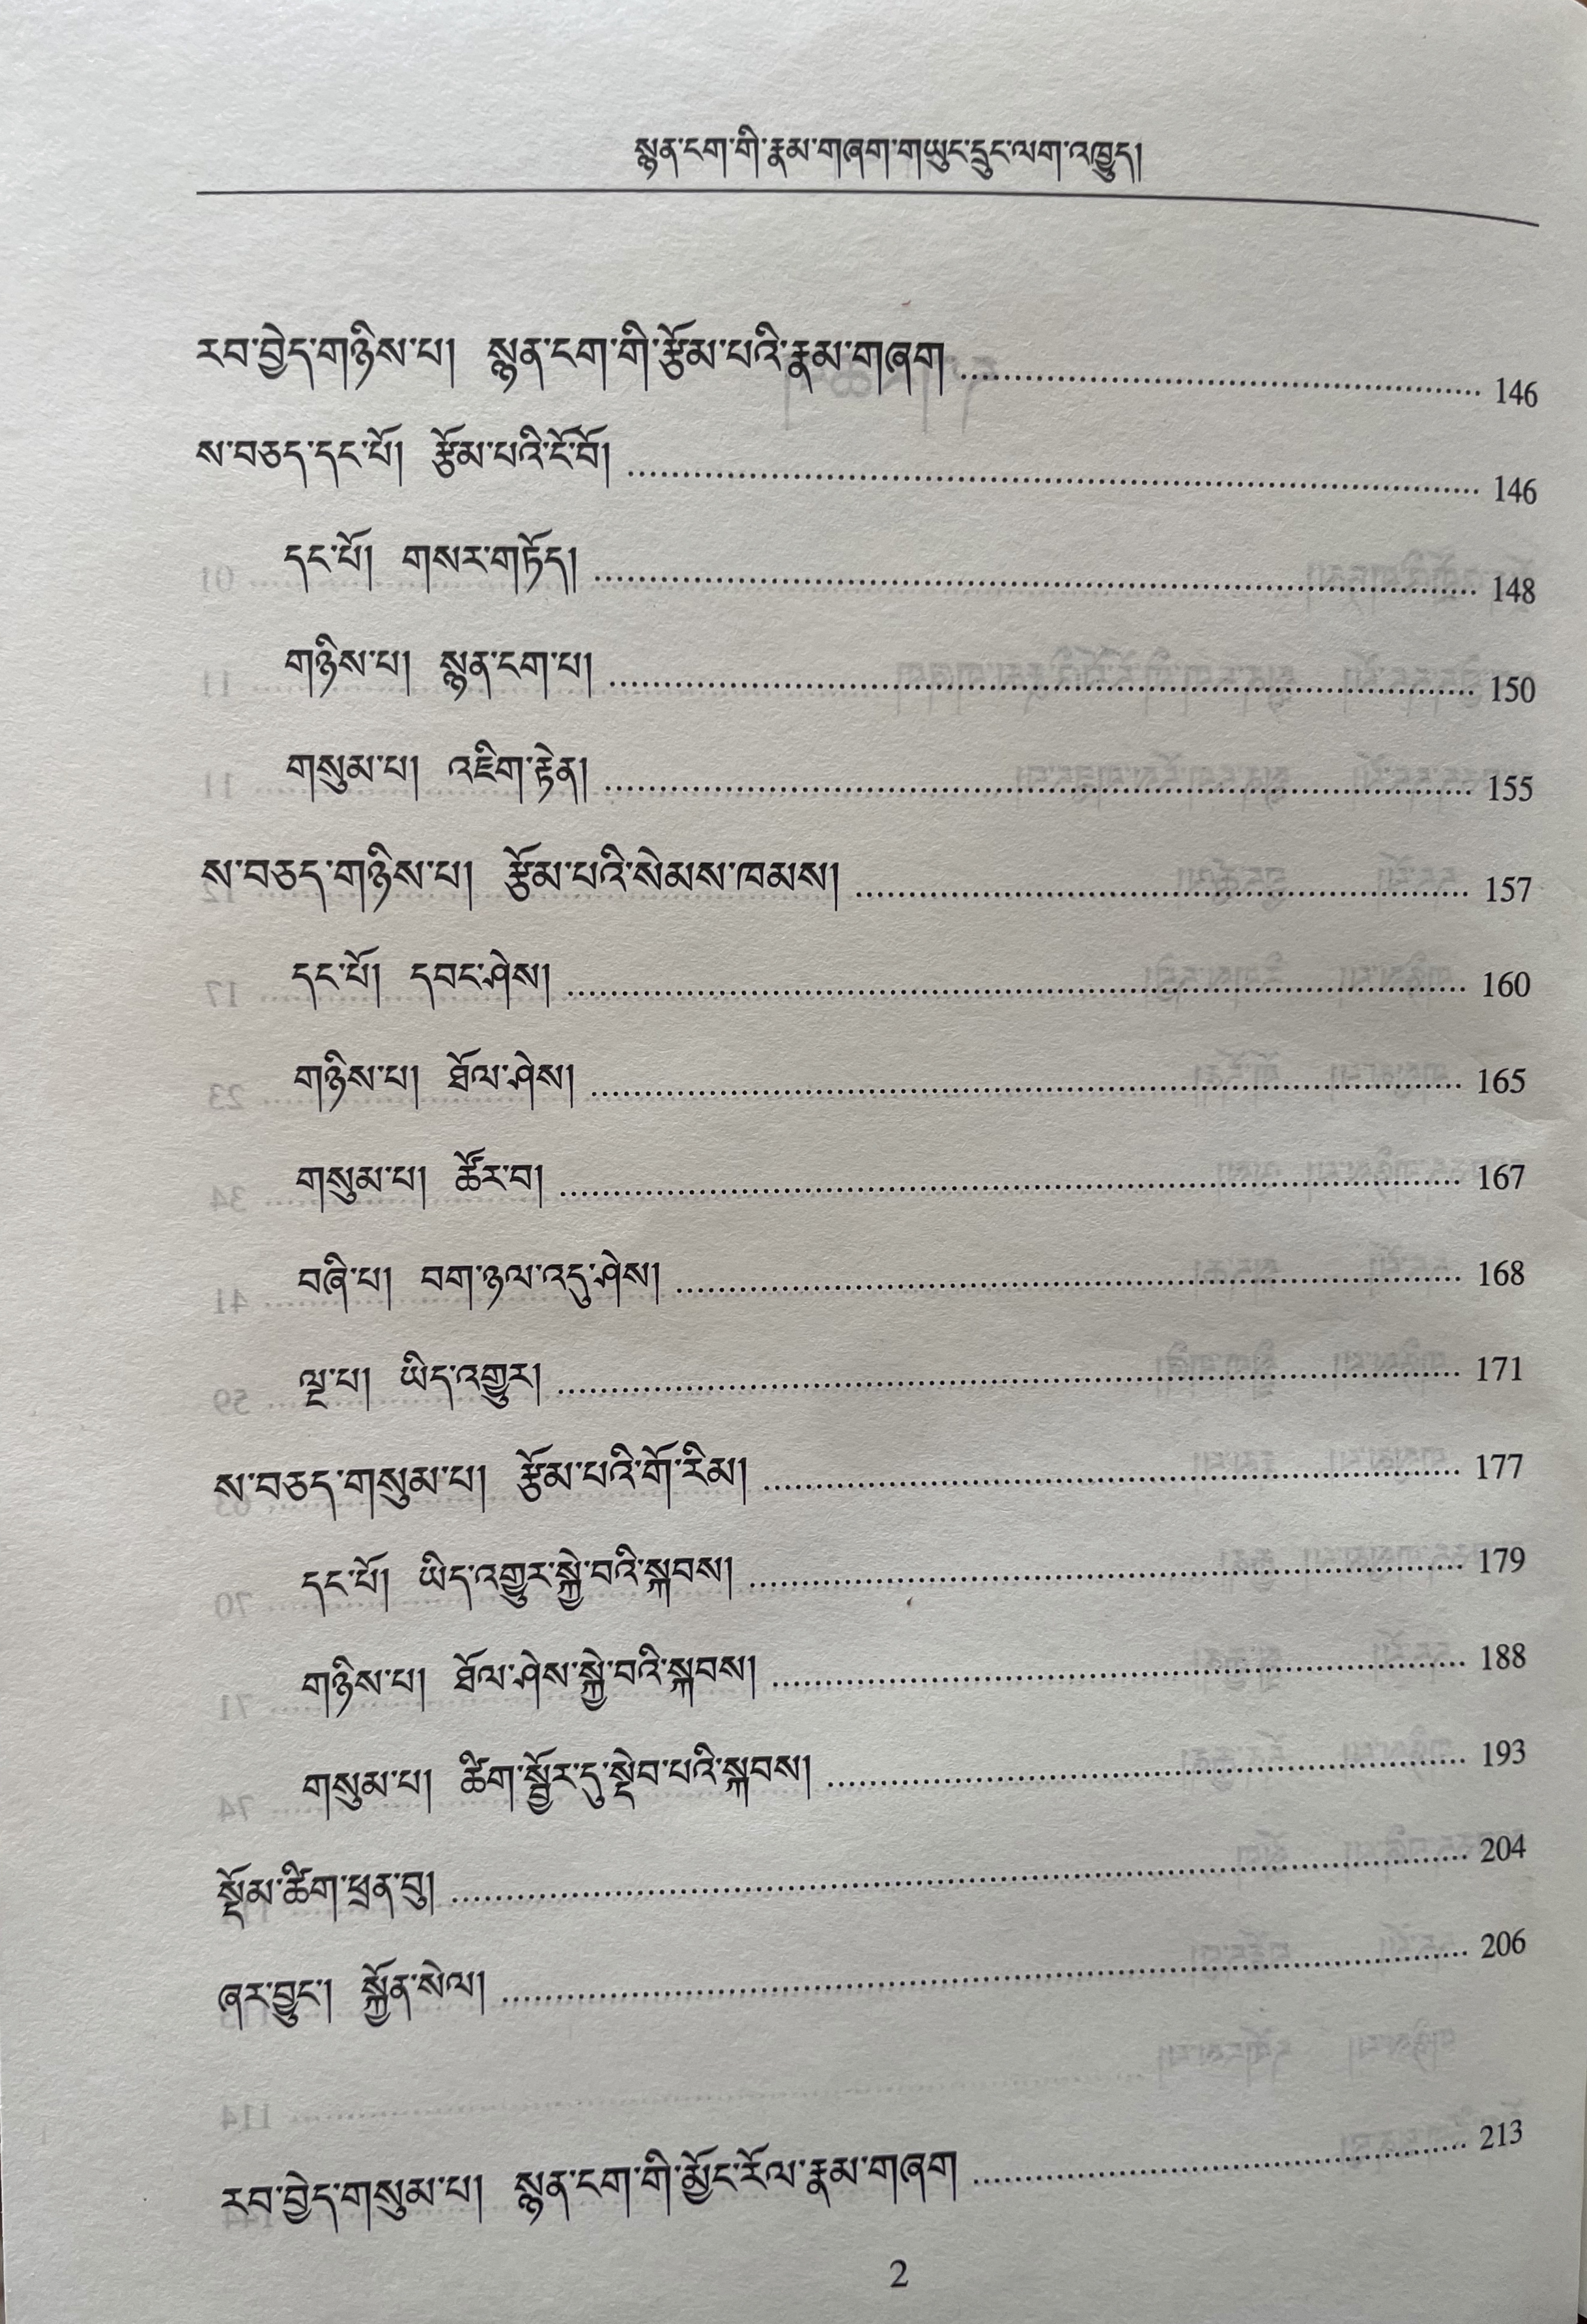 སྙན་ངག་གི་རྣམ་གཞག་གཡུང་དྲུང་ལག་འཁྱུད།
རབ་བྱེད་གཉིས་པ། སྙན་ངག་གི་རྩོམ་པའི་རྣམ་གཞག ........ 146
ས་བཅད་དང་པོ། རྩོམ་པའི་ངོ་བོ། ........ 146
དང་པོ། གསར་གཏོད། ........ 148
གཉིས་པ། སྙན་ངག་པ། ........ 150
གསུམ་པ། འཇིག་རྟེན། ........ 155
ས་བཅད་གཉིས་པ། རྩོམ་པའི་སེམས་ཁམས། ........ 157
དང་པོ། དབང་ཤེས། ........ 160
གཉིས་པ། ཐོལ་ཤེས། ........ 165
གསུམ་པ། ཚོར་བ། ........ 167
བཞི་པ། བག་ཉལ་འདུ་ཤེས། ........ 168
ལྔ་པ། ཡིད་འགྱུར། ........ 171
ས་བཅད་གསུམ་པ། རྩོམ་པའི་གོ་རིམ། ........ 177
དང་པོ། ཡིད་འགྱུར་སྐྱེ་བའི་སྐབས། ........ 179
གཉིས་པ། ཐོལ་ཤེས་སྐྱེ་བའི་སྐབས། ........ 188
གསུམ་པ། ཚིག་སྦྱོར་དུ་སྡེབ་པའི་སྐབས། ........ 193
སྡོམ་ཚིག་ཕྲན་བུ། ........ 204
ཞར་བྱུང་། སྐྱོན་སེལ། ........ 206
རབ་བྱེད་གསུམ་པ། སྙན་ངག་གི་མྱོང་རོལ་རྣམ་གཞག ........ 213
2